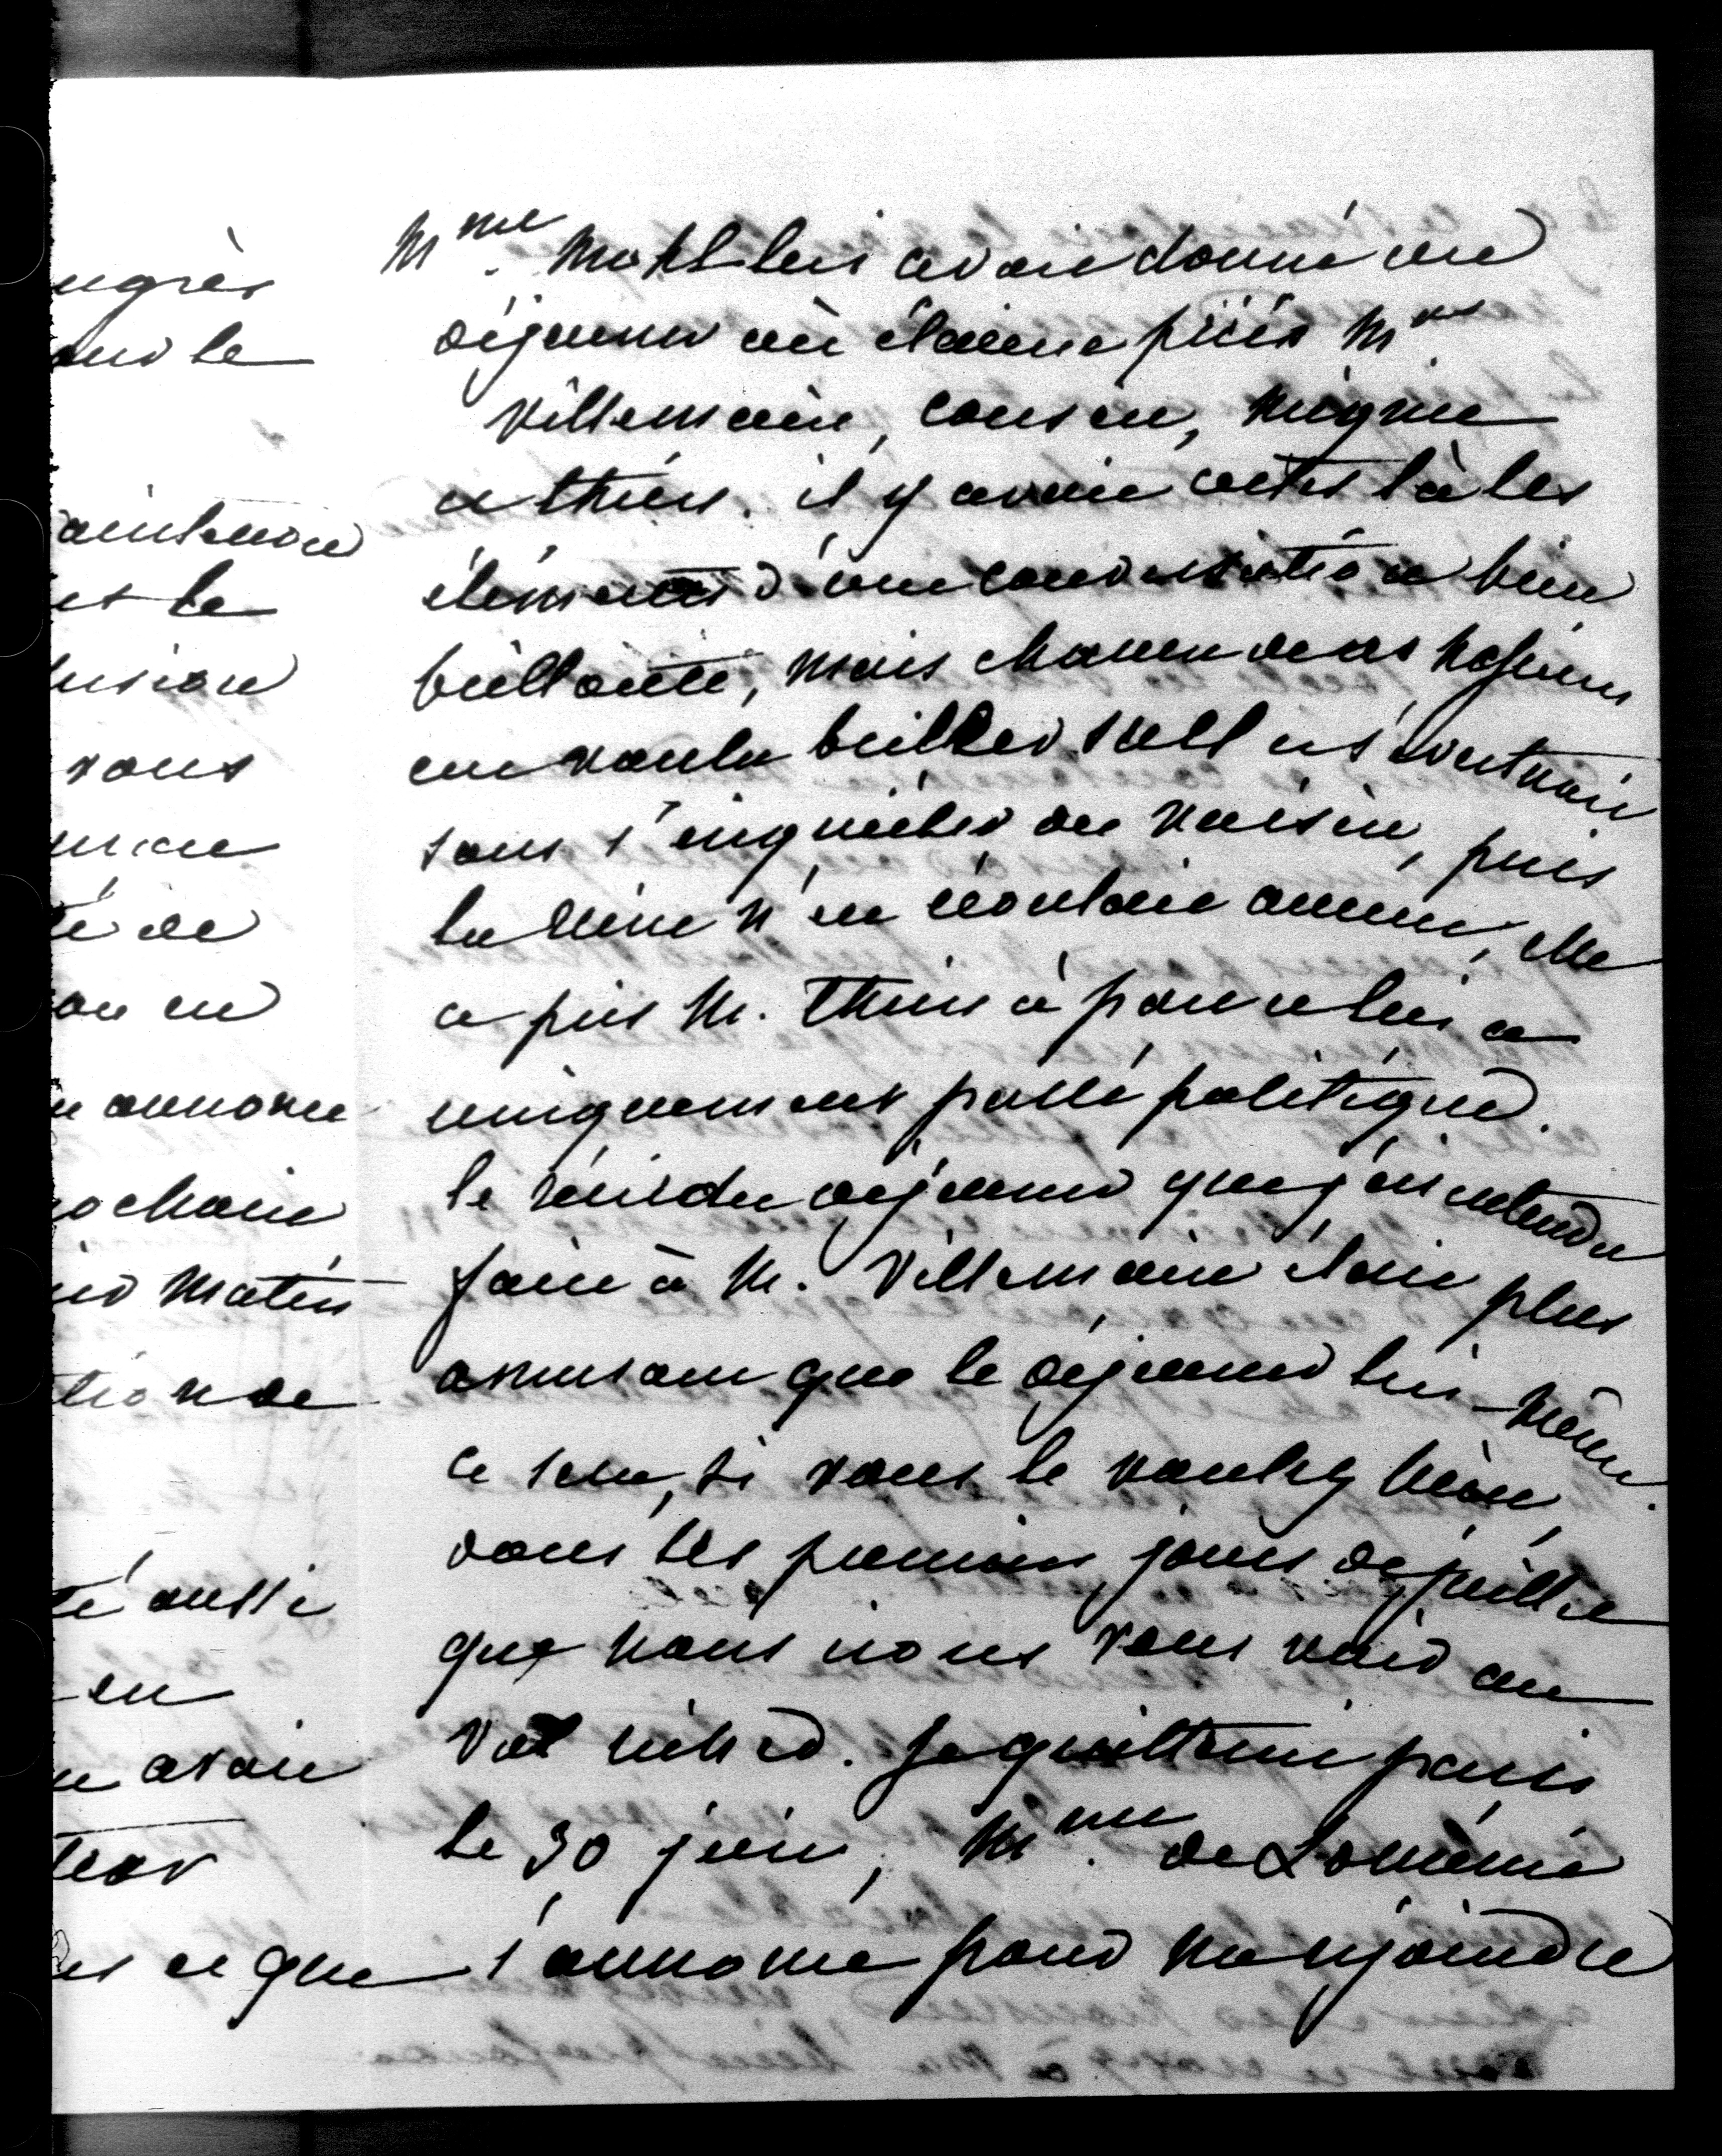 Mme. Mohl lui avait donné un
déjeuner où étaient priés Mrs
Villemain, cousin, mignet
et thiers. il y avait certes là les
éléments d'une conversation bien
brillante, mais chacun de ces Messieurs
eut voulu briller seul et s'évertuait
sans s'inquiéter du voisin, puis
la reine n'en écoutait aucun, elle
a pris M. thiers à part et lui a
uniquement parlé politique.
le récit du déjeuner que j'ai entendu
faire à M. Villemain était plus
amusant que le déjeuner lui-même.
ce sera, si vous le voulez bien,
dans les premiers jours de juillet
que nous irons vous voir au
Val richer. je quitterai paris
le 30 juin, Mme. de Loménie
s'annonce pour me rejoindre
ugrès
our le
aintenon
et le
usion
vous
té de
ou en
annonce
ochain
matin
tion de
té aussi
en
avait
es ce que